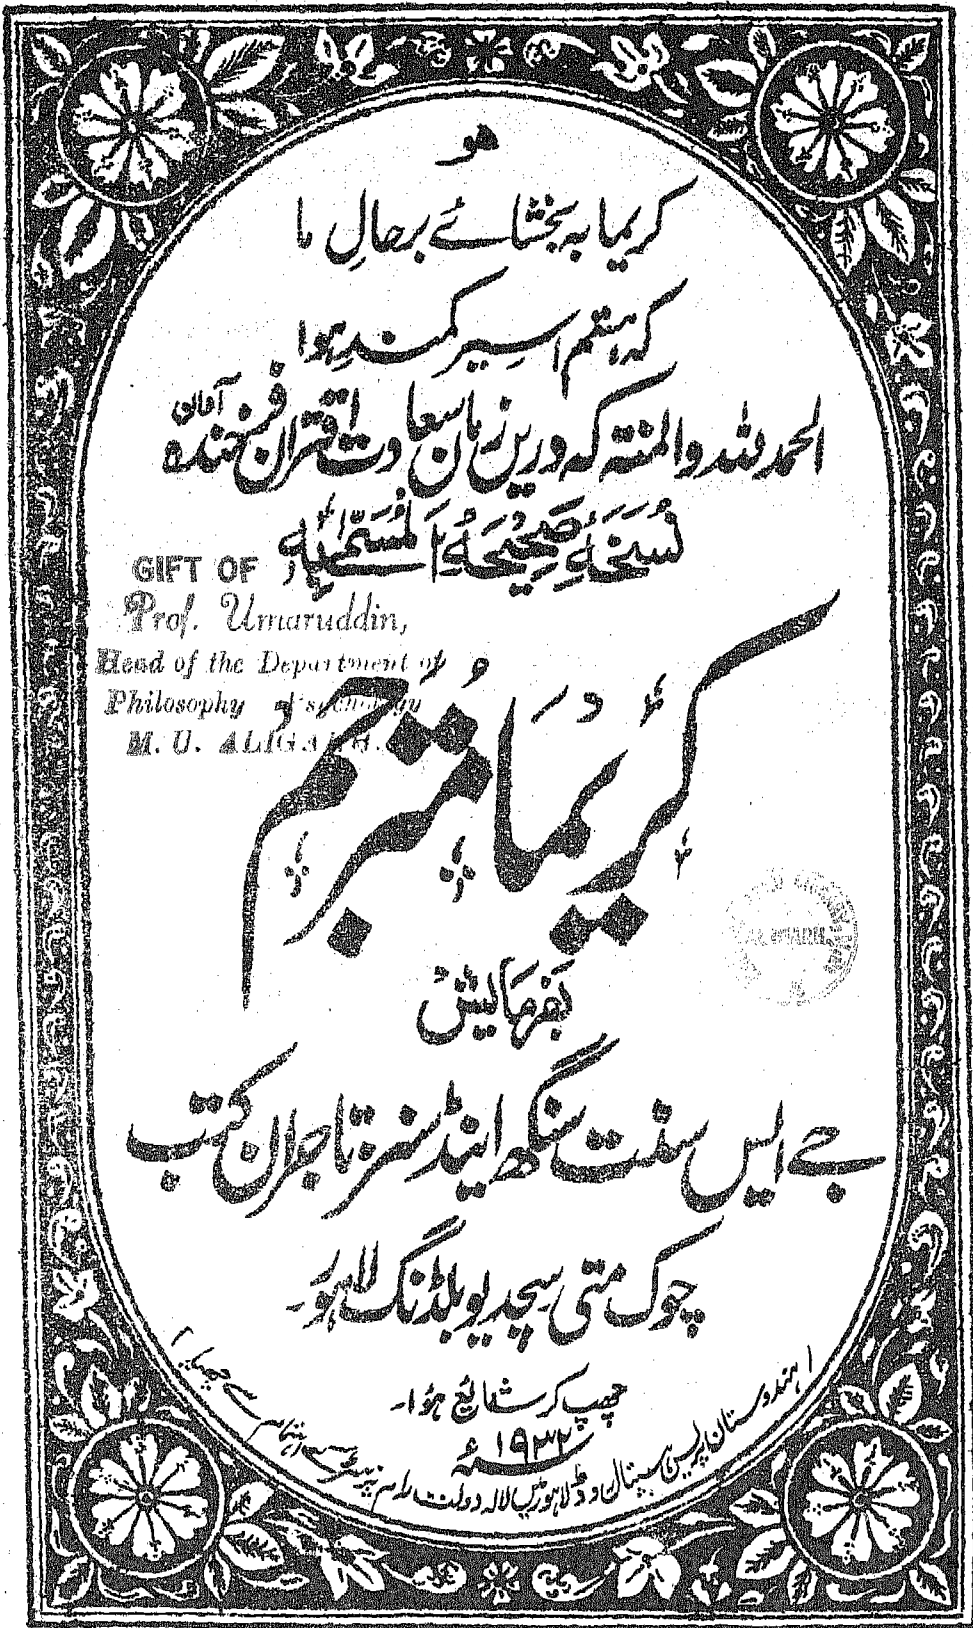 ھو
کریما بہ بخشائے برحالِ ما
کہ ہستم اسیرِ کمندِ ہوا
الحمد للہ والمنتہ کہ دریں زمان سعادت اقتران فرخندہ آفاق
نسخۂ صحیحہ المسمّٰی بہ
GIFT OF
Prof. Umaruddin,
Head of the Department of
Philosophy Psychology
M. U. ALIGARH.
کریما مترجم
بفرمایش
جے ایس سنت سنگھ اینڈ سنز تاجران کتب
چوک متی سچدیو بلڈنگ لاہور۔
چھپ کر شائع ہؤا۔
۱۹۳۲ء
ہندوستان پریس ہسپتال روڈ لاہور میں لالہ دولت رام پرنٹر کے اہتمام سے چھپا